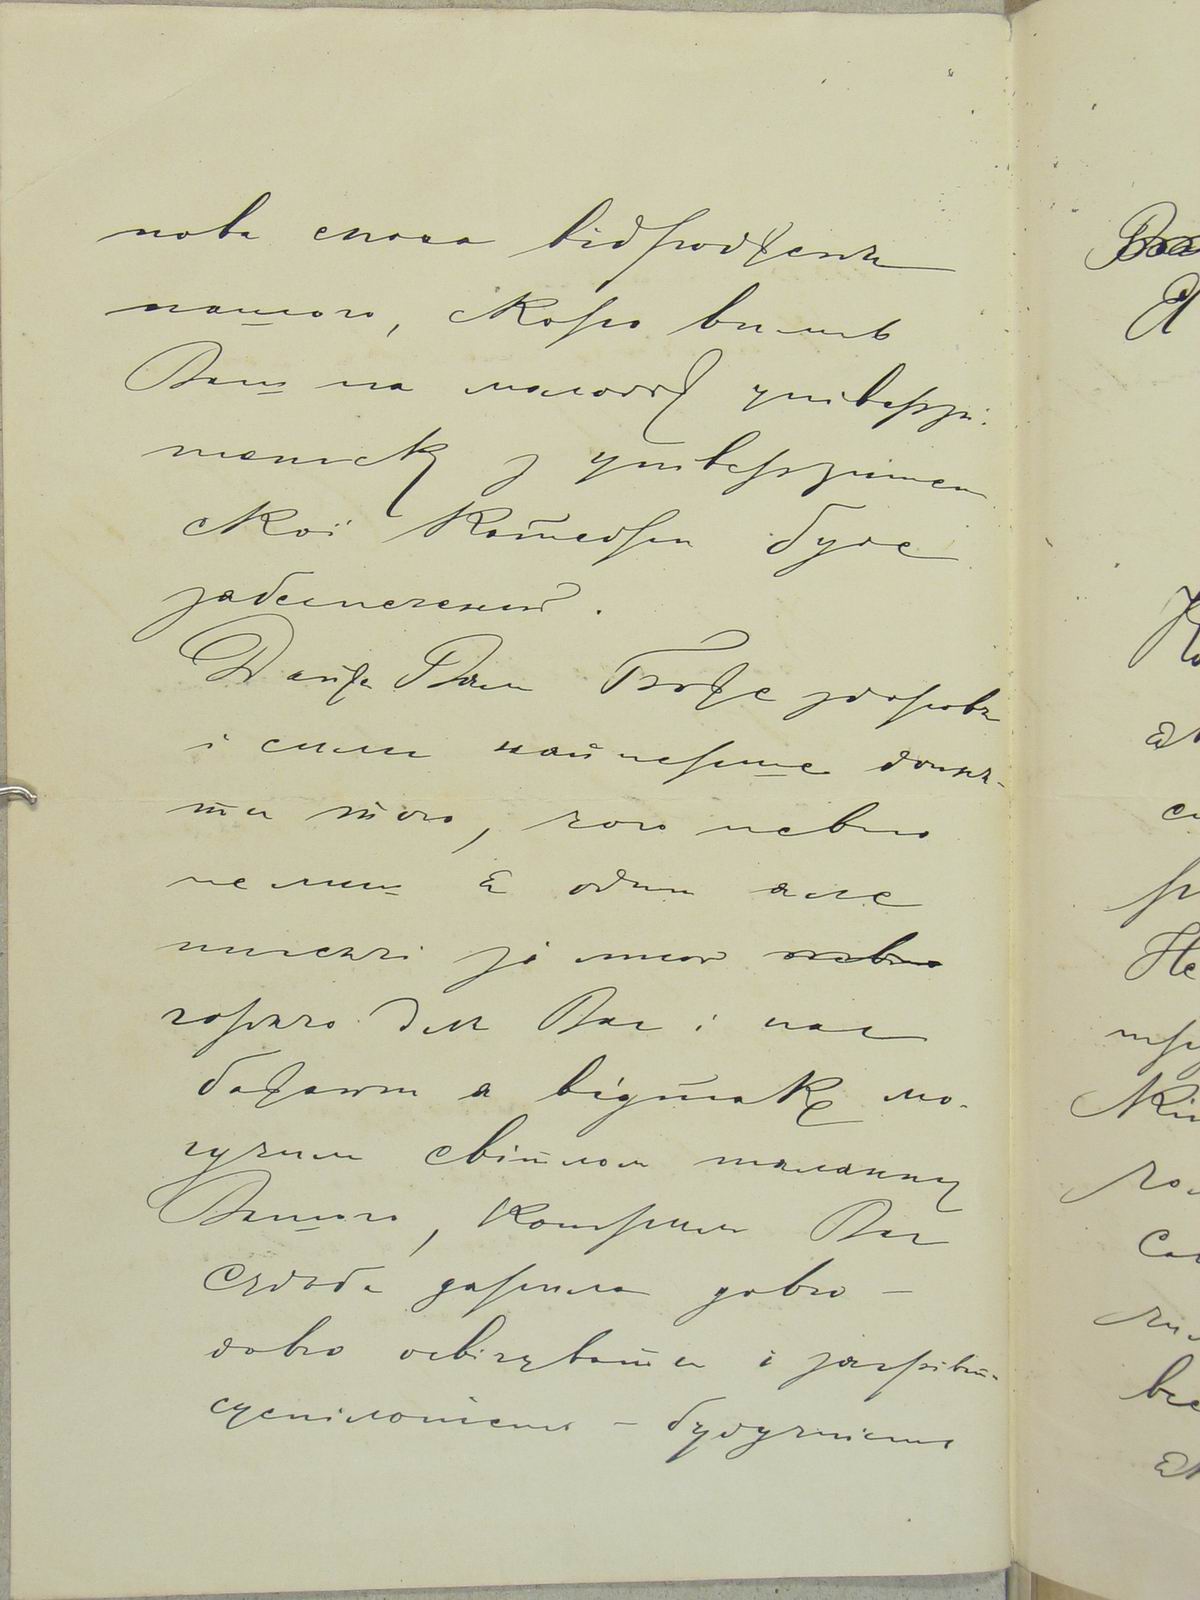 нова епоха відродженя
нашого, скоро вплив
Ваш на молодїж унїверзи-
тетску з унїверзитет
скої катедри буде
забезпечений.
Дай же Вам Боже здоровя
і сили найперше допня-
ти того, чого певно
не лиш я один але
тисячі зі мною певно
горячо для Вас і нас
бажают а відтак мо-
гучим світлом таланту
Вашого, котрим Вас
судьба дарила довго –
довго освічувати і загріват
суспільність – будучність